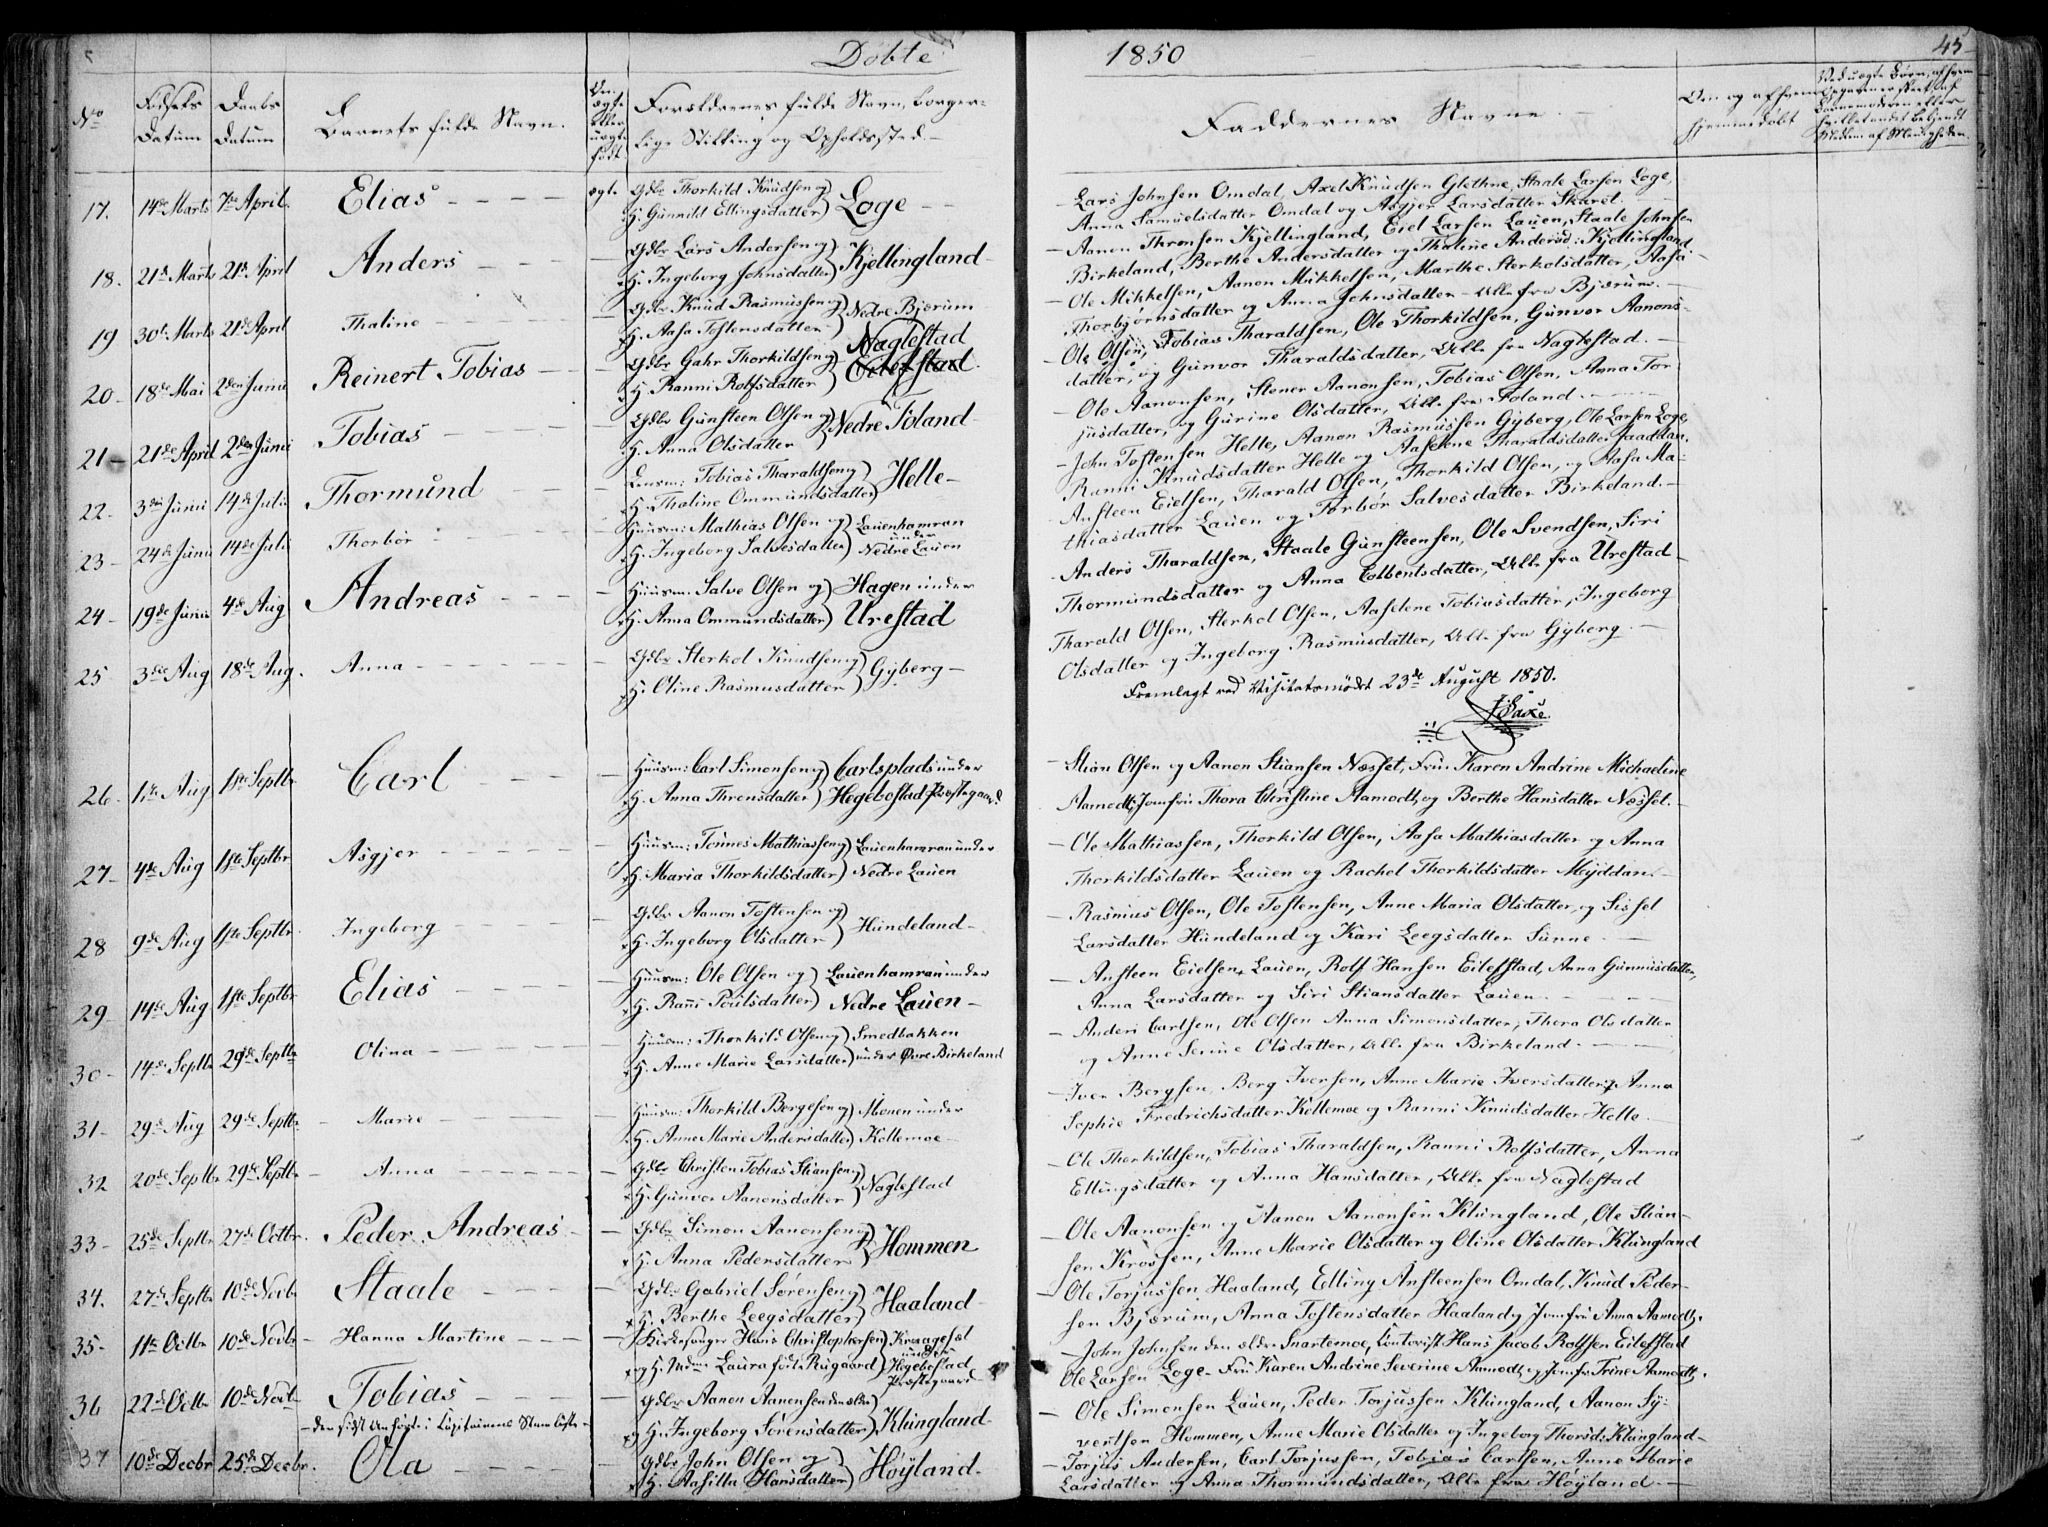 Døbte
1850
45
No
Fødsels Datum
Daabs Datum
Barnets fulde Navn.
Om ægte eller uægte født
Forældrenes fulde Navn, borgerlige Stilling og Opholdssted
Faddernes Navne
Om og af hvem hjemmedøbt
17. 14de Marts 7de April. Elias ægte Gdbr Thorkild Knudsen og
H. Gunnild Ellingsdatter) Loge
Lars Johnsen Omdal, Axel Knudsen Glethne, Staale Larsen Loge,
Anna Samuelsdatter Omdal og Asgjer Larsdatter Skarst.
18. 21de Marts 21de April Anders Gdbr Lars Andersen og
H. Ingeborg Johnsdatter) Kjellingland
Aanon Thronsen Kjellingland, Eiel Larsen Lauen, Staale Johnsen
Birkeland, Berthe Andersdatter og Thaline Andersd: Kjellingland
19 30te Marts 21de April Thaline Gdbr Knud Rasmussen og
H. Aasa Tostensdatter) Nedre Bjærum
Ole Mikkelsen, Aanon Mikkelsen, Marthe Sterkolsdatter, Aasa
Thorbjørnsdatter og Anna Johnsdatter Alle fra Bjærum.
20 18de Mai 2den Junii Reinert Tobias Gdbr Gahr Thorkildsen og
H. Ranni Rolfsdatter) Naglestad Eilefstad
Ole Olsen, Tobias Tharaldsen, Ole Thorkildsen, Gunvor Aanons-
datter, og Gunvor Tharaldsdatter, Alle fra Naglestad.
21 21de April 2den Junii Tobias Gdbr Gunsteen Olsen og
H. Anna Olsdatter) Nedre Foland
Ole Aanonsen, Stener Aanonsen, Tobias Olsen, Anna Tor-
jusdatter, og Gurine Olsdatter, Alle fra Foland.
22. 3die Junii 14de Julii Thormund Lensm: Tobias Tharaldsen og
H. Thaline Ommundsdatter) Helle
John Tostensen Helle, Aanon Rasmussen Gyberg, Ole Larsen Loge,
Ranni Knudsdatter Helle og Aaselene Tharaldsdatter
23 24de Junii 14de Julii Thorbør Huusm: Mathias Olsen og
H. Ingeborg Salvesdatter) Lauenhamran under Nedre Lauen
Ansteen Eielsen, Tharald Olsen, Thorkild Olsen, og Aasa Ma-
thiasdatter Lauen og Torbør Salvesdatter Birkeland.
24 19de Junii 4de Aug Andreas Huusm: Salve Olsen og
H. Anna Ommundsdatter) Hagen under Urestad
Anders Tharaldsen, Staale Gunsteensen, Ole Svendsen, Siri
Thormundsdatter og Anna Eolbentsdatter, Alle fra Urestad
25 3die Aug 18de Aug. Anna Gdbr Sterkol Knudsen og
H. Oline Rasmusdatter) Gyberg
Tharald Olsen, Sterkol Olsen, Aaselene Tobiasdatter, Ingeborg
Olsdatter og Ingeborg Rasmusdatter, Alle fra Gyberg.
Fremlagt ved Visitatsmødet 23de August 1850.
26. 1ste Aug 1ste Septbr Carl Huusm: Carl Simonsen og
H. Anna Thronsdatter) Carlsplads under Hegebostad Præstegaard
Stian Olsen og Aanon Stiansen Næsset, Fru Karen Andrine Michaeline
Aamodt, Jomfru Thora Christine Aamodt, og Berthe Hansdatter Næsset.
27 4de Aug 1ste Septbr Asgjer Huusm: Tønnes Mathiassen og
H. Maria Thorkildsdatter) Lauenhamran under Nedre Lauen
Ole Mathiassen, Thorkild Olsen, Aasa Mathiasdatter og Anna
Thorkildsdatter Lauen og Rachel Thorkildsdatter Møyddan
28 9de Aug 1ste Septbr Ingeborg Gdbr Aanon Tostensen og
H. Ingeborg Olsdatter) Hundeland
Rasmus Olsen, Ole Tostensen, Anne Maria Olsdatter, og Sissel
Larsdatter Hundeland og Kari Leegsdatter Sunne.
29 14de Aug 1ste Septbr Elias Huusm: Ole Olsen og
H. Ranni Poulsdatter) Lauenhamran under Nedre Lauen
Ansteen Eielsen, Lauen, Rolf Hansen Eilefstad, Anna Gunmusdatter,
Anna Larsdatter og Siri Stiansdatter Lauen.
30 14de Septbr 29de Septbr Olina Huusm: Thorkild Olsen og
H. Anne Marie Larsdatter) Smedbakken under Øvre Birkeland
Anders Carlsen, Ole Olsen Anna Simonsdatter, Thora Olsdatter
og Anne Serine Olsdatter, Alle fra Birkeland.
31 29de Aug 29de Septbr Marie Huusm: Thorkild Bergesen og
H. Anne Marie Andersdatter) Monen under Kollemoe
Iver Bergsen, Berg Iversen, Anne Marie Iversdatter, Anna
Sophie Fredrichsdatter Kollemoe og Ranni Knudsdatter Helle
32 20de Septbr 29de Septbr Anna Gdbr Christen Tobias Stiansen og
H. Gunvor Aanonsdatter) Naglestad
Ole Thorkildsen, Tobias Tharaldsen, Ranni Rolfsdatter, Anna
Ellingsdatter og Anna Hansdatter, Alle fra Naglestad
33 25de Septbr 27de Octbr. Peder Andreas Gdbr Simon Aanonsen og
H. Anna Pedersdatter) Hommen
Ole Aanonsen og Aanon Aanonsen Klungland, Ole Stian-
sen Krossen, Anne Marie Olsdatter og Oline Olsdatter Klungland
34. 27de Septbr 10de Novbr Staale Gdbr Gabriel Sørensen og
H. Berthe Leegsdatter) Haaland
Ole Torjussen, Haaland, Elling Ansteensen Omdal, Knud Peder-
sen Bjærum, Anna Tostensdatter Haaland og Jomfru Anna Aamodt.
35 11te Octbr 10de Novbr Hanna Martine Kirkesanger Hans Christophersen
og H. Mdm: Laura født Rugaard) Kraagesæt under Hegebostad Præstegaard
John Johnsen den ældre Snartemoe, Contorist Hans Jacob Rolfsen Eilefstad
Ole Larsen Loge, Fru Karen Andrine Severine Aamodt, og Jomfr. Trine Aamodt.
36 22de Octbr 10de Novbr Tobias Gdbr Aanon Aanensen den ældre
og H. Ingeborg Sørensdatter) Klungland
Ole Simonsen Lauen, Peder Torjussen Klungland, Aanon Sy-
vertsen Hommen, Anne Marie Olsdatter og Ingeborg Thorsd: Klungland
37 10de Decbr 25de Decbr. Ola Gdbr John Olsen og
H. Aasilla Hansdatter) Høyland
Torjus Andersen, Carl Torjussen, Tobias Carlsen, Anne Marie
Larsdatter og Anna Thormundsdatter, Alle fra Høyland.